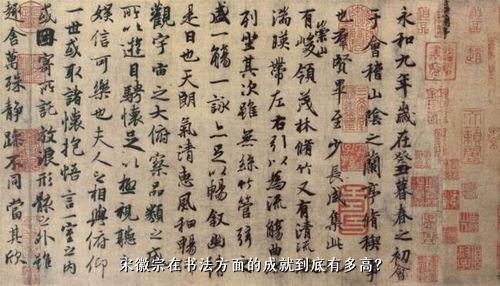 永和九年歲在癸丑暮春之初會
于會稽山陰之蘭亭脩稧
也羣賢畢至少長咸集此
有崇山峻領茂林脩竹又有清流
湍暎帶左右引以為流觴曲
列坐其次雖無絲竹管弦
盛一觴一詠亦足以暢叙幽情
是日也天朗氣清惠風和暢
觀宇宙之大俯察品類之
所以遊目騁懷足以極視聽
娛信可樂也夫人之相與俯仰
一世或取諸懷抱悟言一室之內
或因寄所託放浪形骸之外雖
趣舍萬殊靜躁不同當其欣
宋徽宗在书法方面的成就到底有多高?